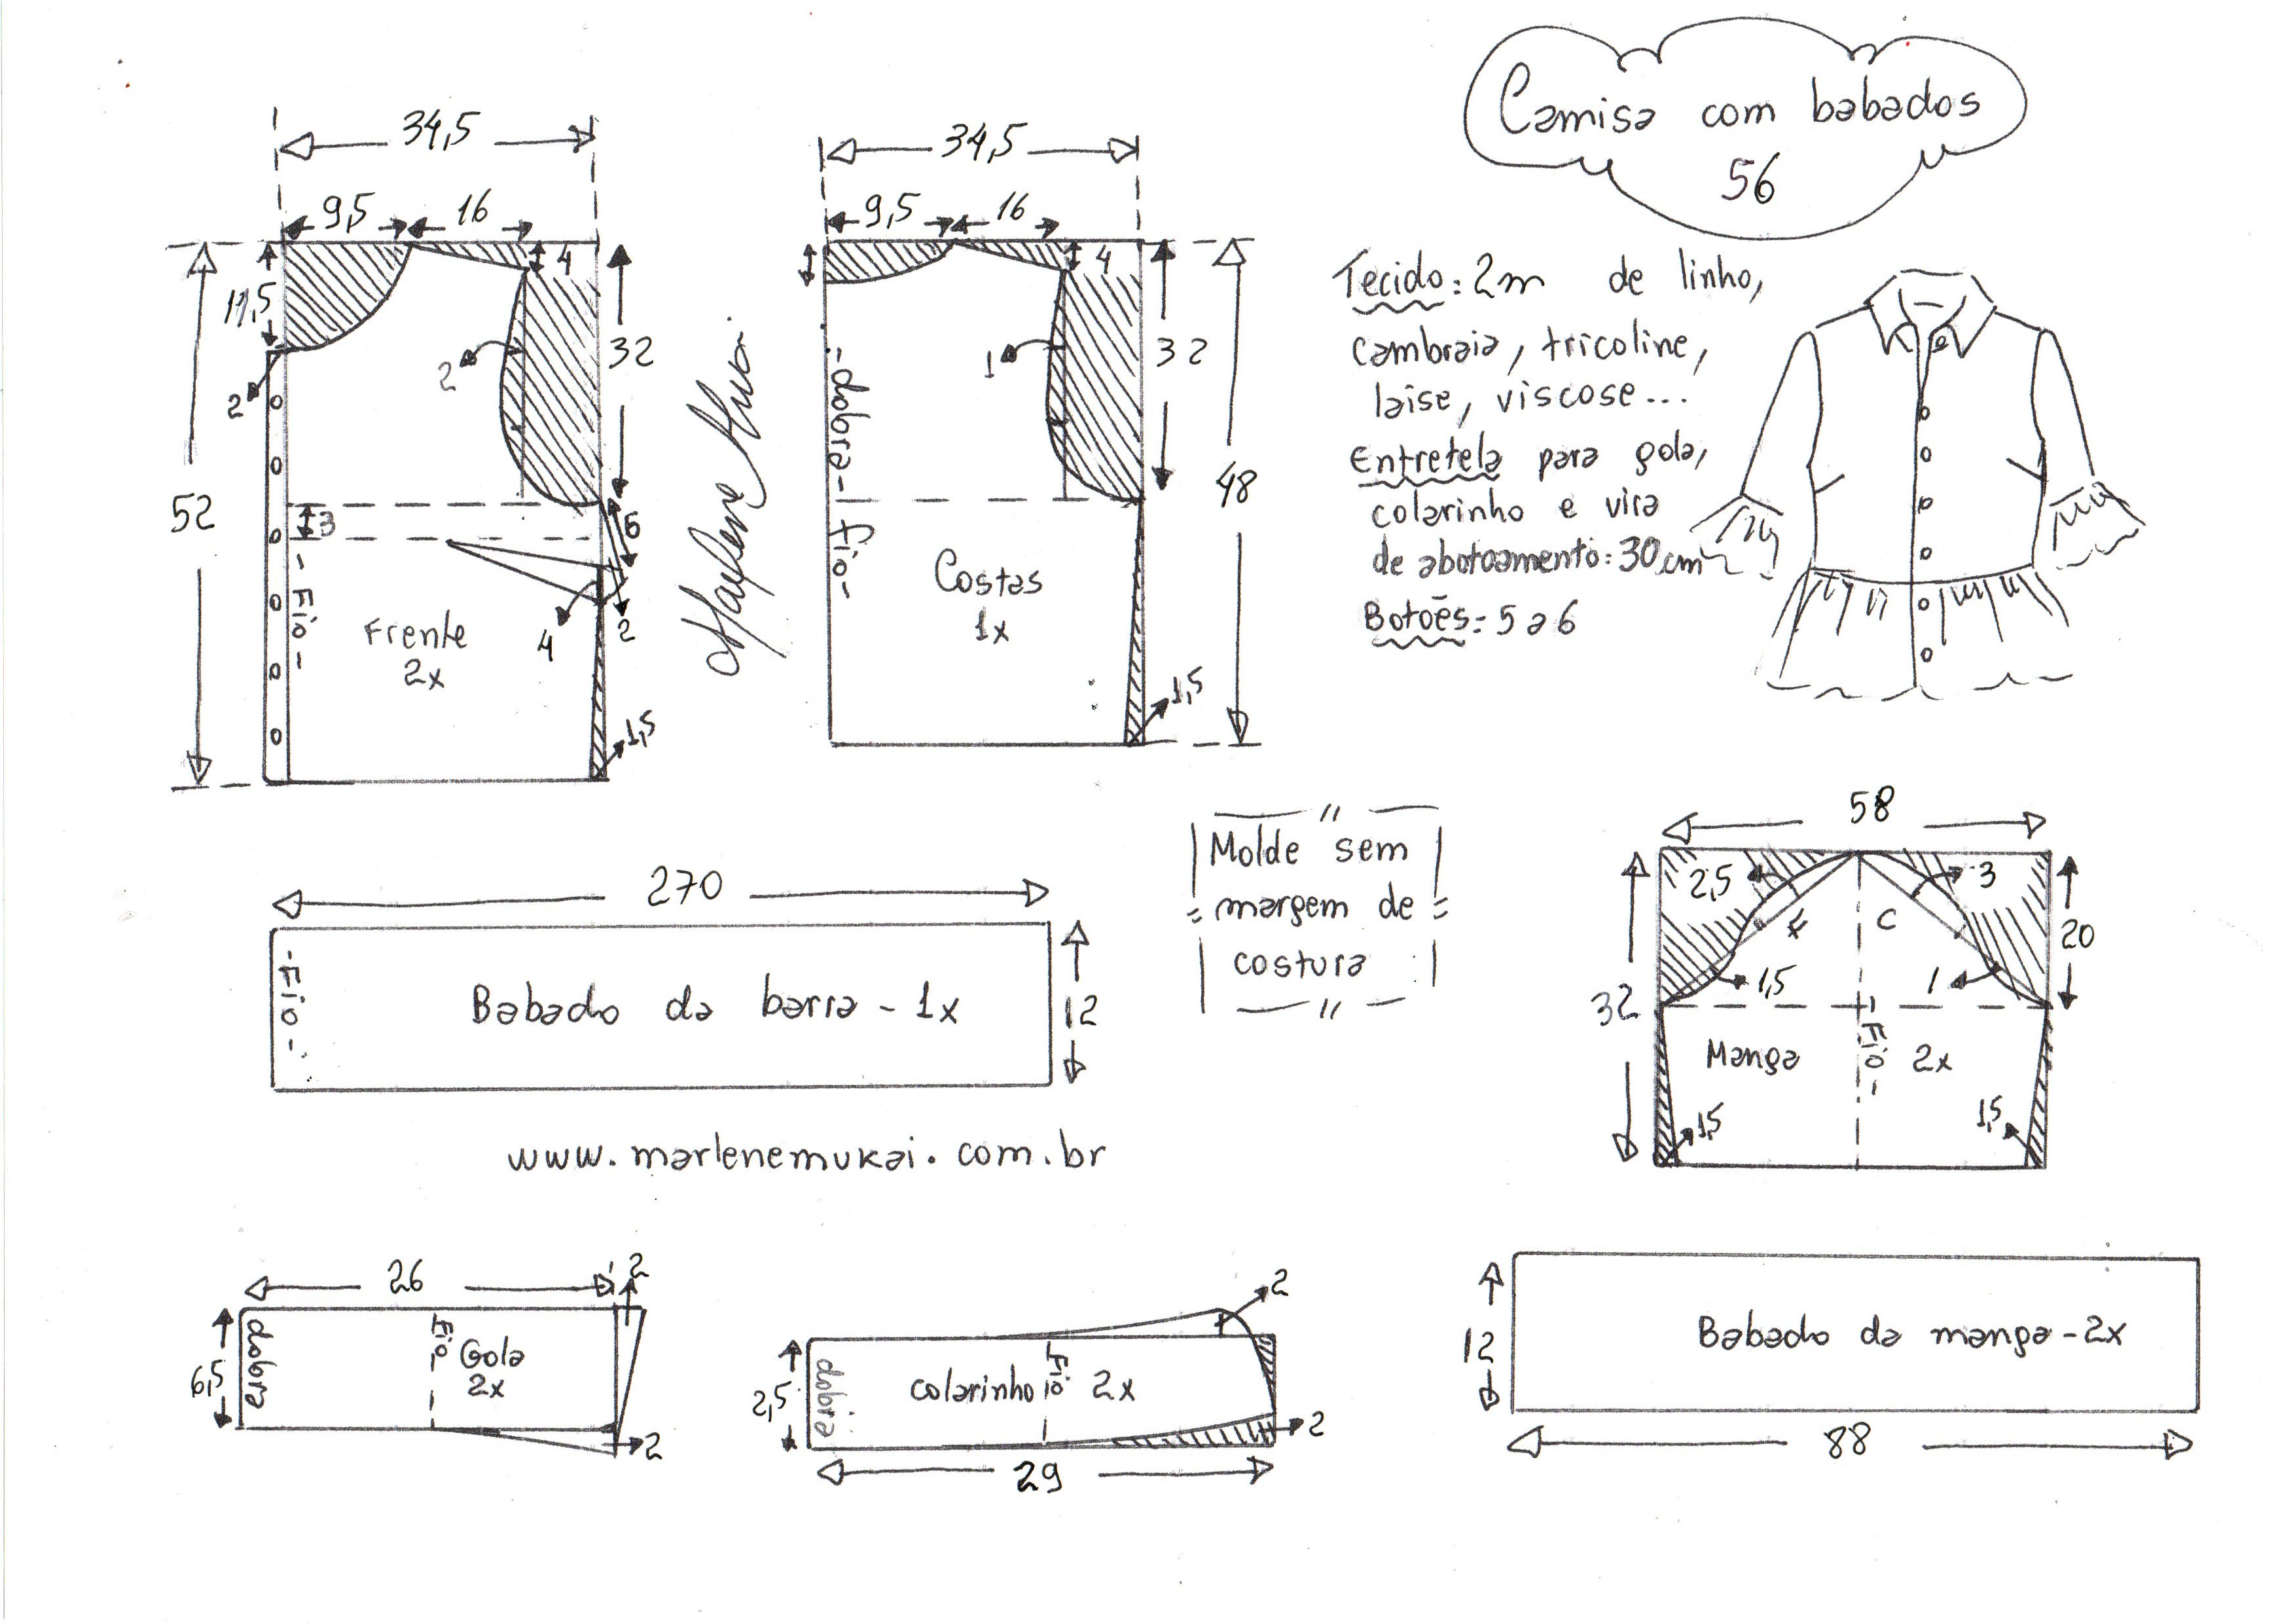 Camisa com babados
56
34,5
9,5
16
4
11,5
2
2
32
52
3
6
- Fio -
Frente
2x
4
2
1,5
Marlene Mukai
34,5
9,5
16
4
1
32
48
- dobra - fio -
Costas
1x
1,5
Tecido: 2m de linho,
cambraia, tricoline,
laise, viscose...
Entretela para gola,
colarinho e vira
de abotoamento: 30cm
Botões: 5 a 6
270
- Fio -
Babado da barra - 1x
12
www.marlenemukai.com.br
Molde sem
margem de
costura
58
2,5
3
F
C
20
1,5
1
32
Manga
- Fio -
2x
1,5
1,5
26
2
6,5
dobra
Fio
Gola
2x
2
2
2,5
dobra
colarinho
Fio
2x
2
29
12
Babado da manga - 2x
88